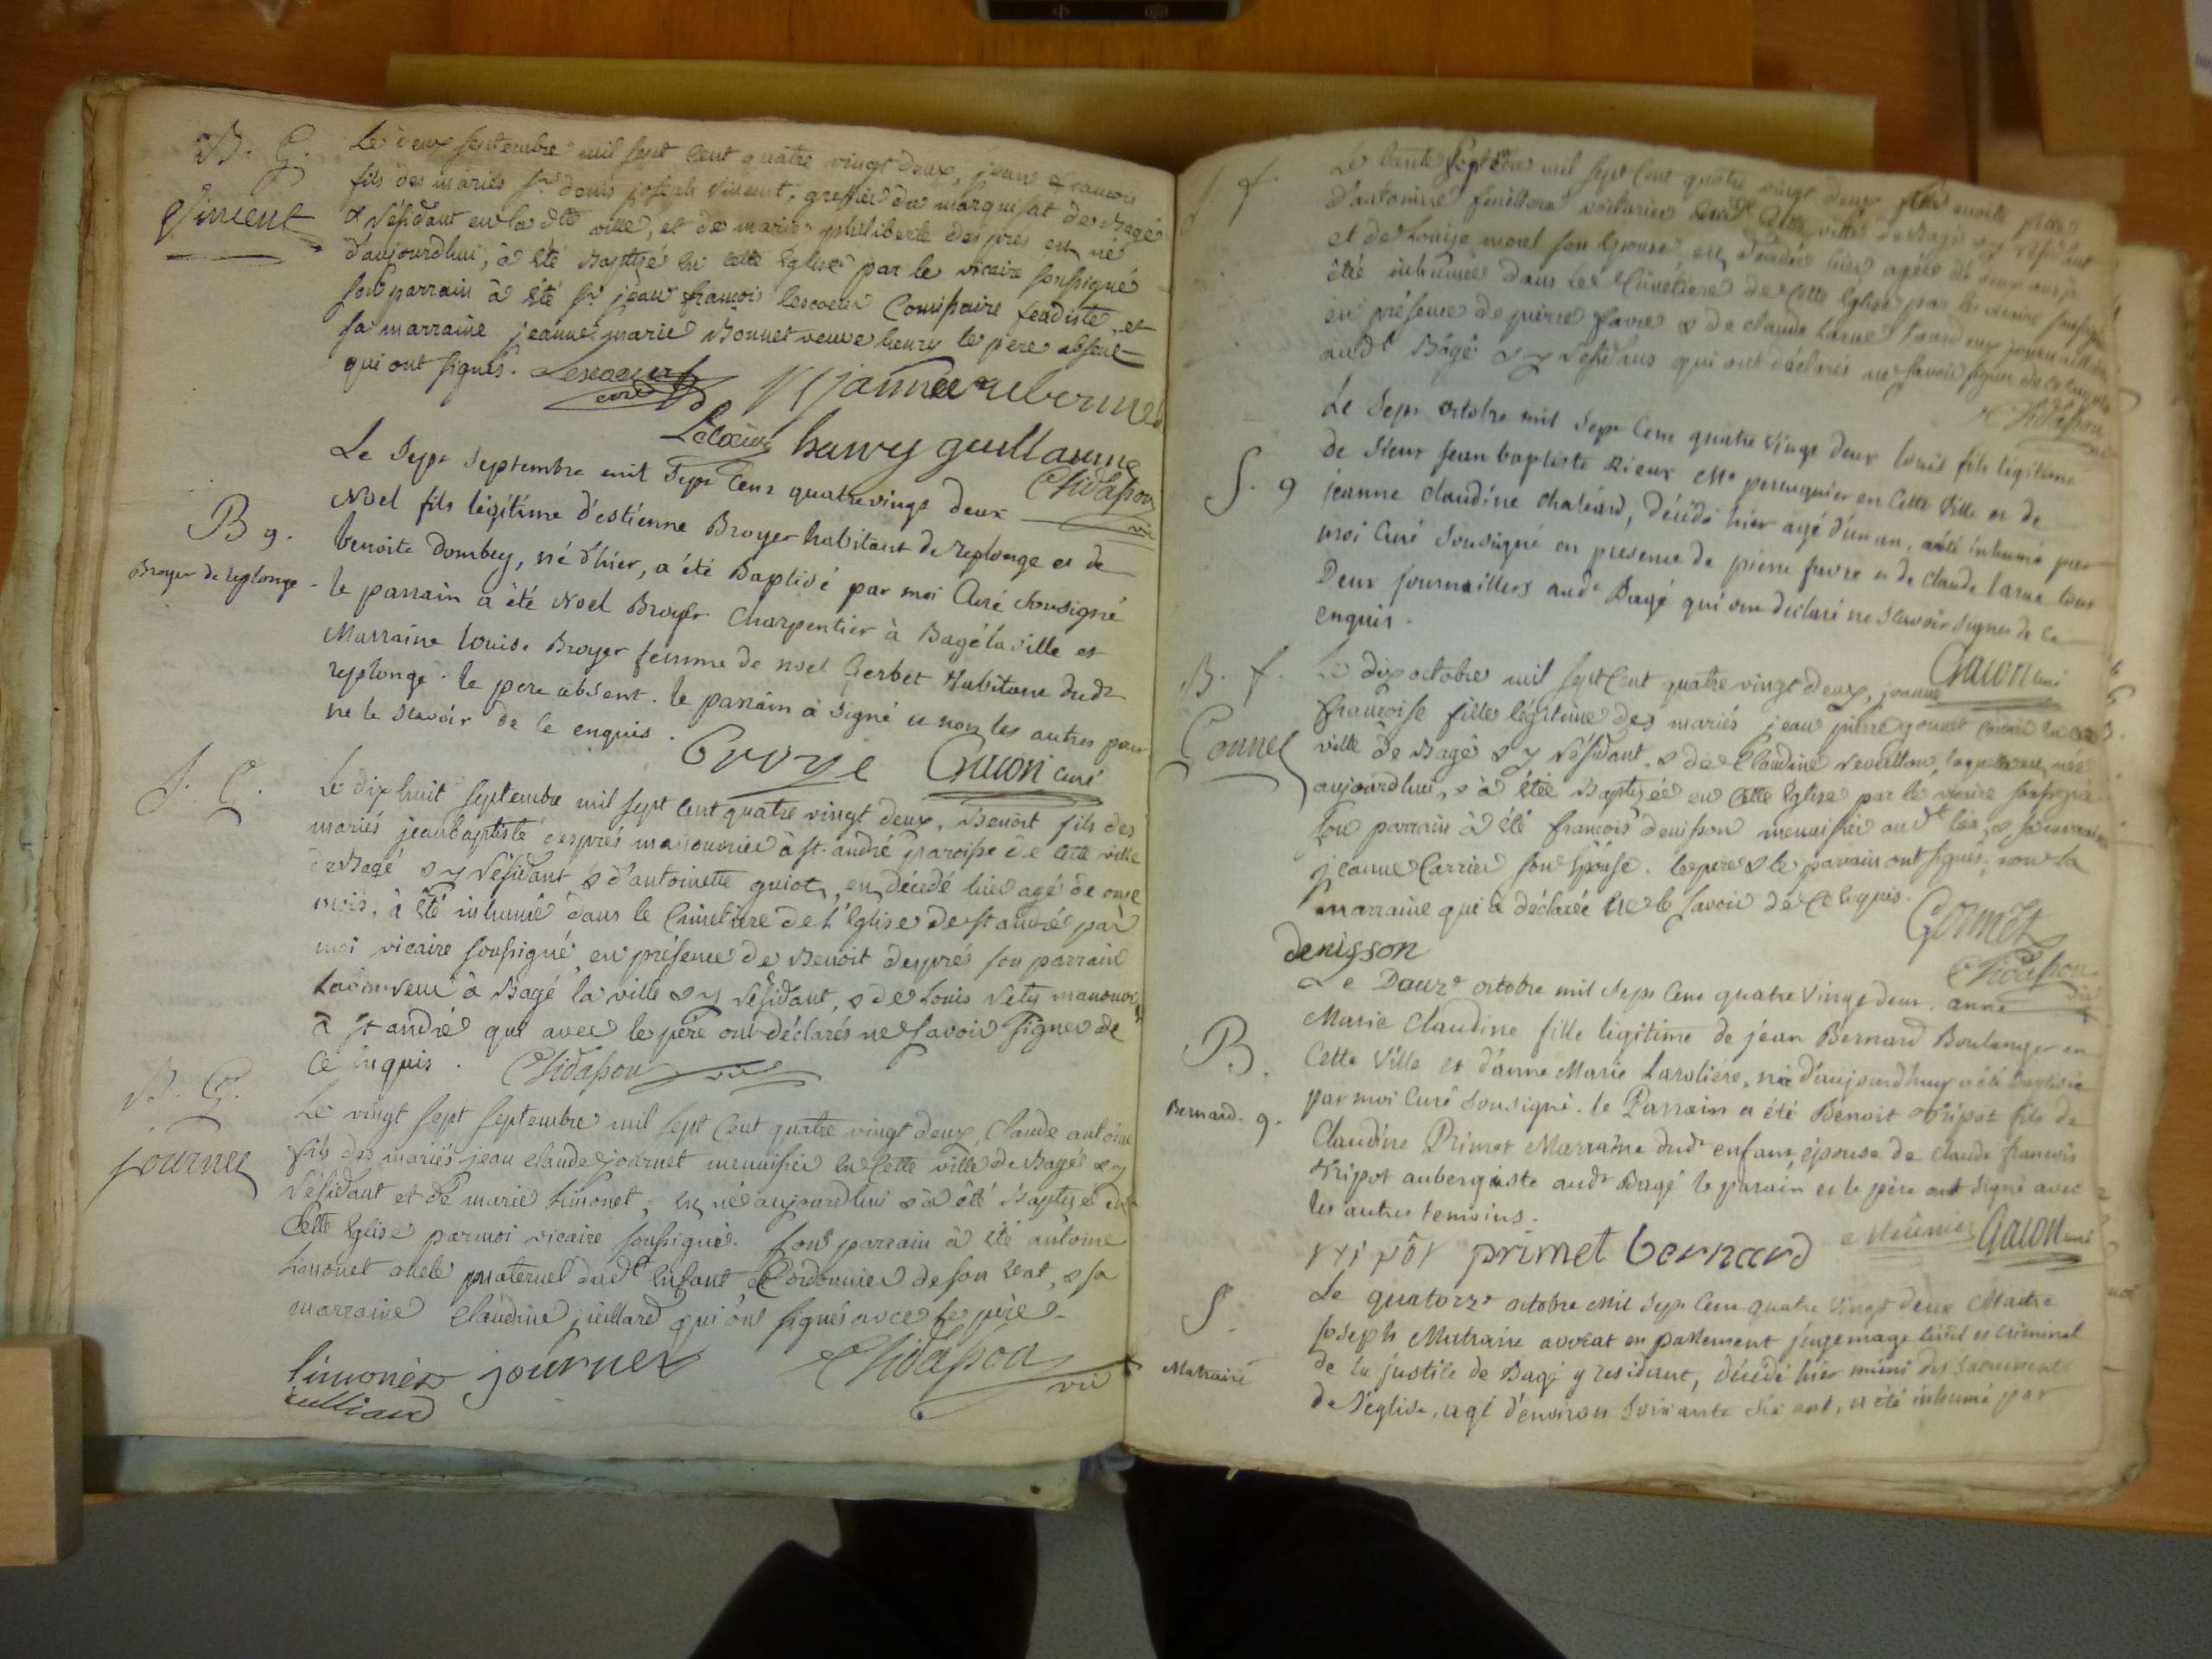 B. G.
Vincent
Le deux septembre mil sept cent quatre vingt deux, jean francois
fils des mariés sr. denis joseph vincent, greffier du marquisat de Bagé
& résidant en la dte ville, et de marie philiberte desprès en né
d'aujourdhui, à été Baptizé en cette Eglise par le vicaire soussigné
son parrain à été sr jean francois lescoeur Comissaire feudiste, et
sa marraine jeanne marie Bonnet veuve henry le pere absent
qui ont signés. Lescoeur
Lecoeur henry guillaume
Chidasson
vic
B g.
Broyer de replonge
Le Sept Septembre mil Sept Cent quatrevingt deux
Noel fils légitime d'estienne Broyer habitant de replonge et de
benoite Dombey, né d'hier, a été Baptisé par moi Curé Soussigné
le parrain a été Noel Broyer Charpentier à Bagé la ville et
Marraine louise Broyer femme de noel Gerbet Habitant dudt
replonge. le pere absent. le parrain a signé et non les autres pour
ne le scavoir de ce enquis.
Broye Gacon curé
S. G.
Le dix huit septembre mil sept cent quatre vingt deux, Benoit fils des
mariés jeanbaptiste després manouvrier à st. andré paroisse de cette ville
de Bagé & y résidant & d'antoinette guiot, en décédé hier agé de onze
mois, à été inhumé dans le Cimetiere de l'Eglise de st andré par
moi vicaire soussigné, en présence de Benoit després son parrain
Laboureur à Bagé la ville & y résidant, & de Louis Vety manouvrier
à st andré qui avec le père ont déclarés ne savoir signer de
ce enquis. Chidasson vic
B. G.
journet
Le vingt sept septembre mil sept cent quatre vingt deux, Claude antoine
fils des mariés jean claude journet menuisier en cette ville de Bagé & y
résidant et de marie limonet, en né aujourdhui & à été Baptizé en
cette Eglise par moi vicaire soussigné. son parrain à été antoine
limonet ayeul maternel dudt enfant, Cordonnier de son état, & sa
marraine Claudine juillard qui ont signés avec le père.
limonet journet Chidasson
vic
julliard
S. f.
Le trente septbre mil sept cent quatre vingt deux
d'antoine feuilloux voiturier cette ville de Bagé & y résidant
et de Louise morel son Epouse, en décédée hier agée de deux ans
été inhumée dans le Cimétiere de cette Eglise par le vicaire soussigné
en présence de pierre favre & de claude larue tous deux journailliers
audt Bâgé & y résidans qui ont déclarés ne savoir signer de ce enquis
Chidasson
S. g
Le Sept octobre mil Sept Cent quatre vingt deux louis fils légitime
de Sieur Jean baptiste Rieux Me perruquier en Cette Ville et de
jeanne claudine chaleard, décédé hier agé d'un an, a été inhumé par
moi Curé Soussigné en presence de pierre favre et de claude larue tous
Deux journailliers audt Bagé qui ont declaré ne scavoir signer de ce
enquis.
Gacon curé
B. f.
Gonnet
Le dix octobre mil sept cent quatre vingt deux, jeanne
francoise fille légitime des mariés jean pierre gonnet en cette
ville de Bagé & y résidant, & de Claudine, laquelle en née
aujourdhui, & à été Baptizée en cette Eglise par le vicaire soussigné
son parrain à été francois denisson menuisier audt lieu, & sa marraine
jeanne Carrier son Epouse. le pere & le parrain ont signés, non la
marraine qui a déclarée ne le savoir de ce enquis.
Gonnet
denisson
Chidasson
vic
B.
Bernard. g.
Le Douze octobre mil Sept Cent quatre Vingt deux. anne
Marie Claudine fille légitime de jean Bernard Boulanger en
Cette Ville et d'anne Marie Laroliere, née d'aujourd'huy a été baptisée
par moi Curé Soussigné. le Parrain a été Benoit Tripoz fils de
Claudine Primet Marraine dudt enfant épouse de claude francois
tripoz aubergiste audt Bagé le parrain et le père ont signé avec
les autres temoins.
tripôz primet bernard Meunier Gacon curé
S.
Mutraire
Le quatorze octobre Mil Sept Cent quatre Vingt deux Maitre
Joseph Mutraire avocat en parlement juge mage civil et criminel
de la justice de Bagé y residant, décédé hier muni des sacrements
de L'église, agé d'environ Soixante dix ans, a été inhumé par